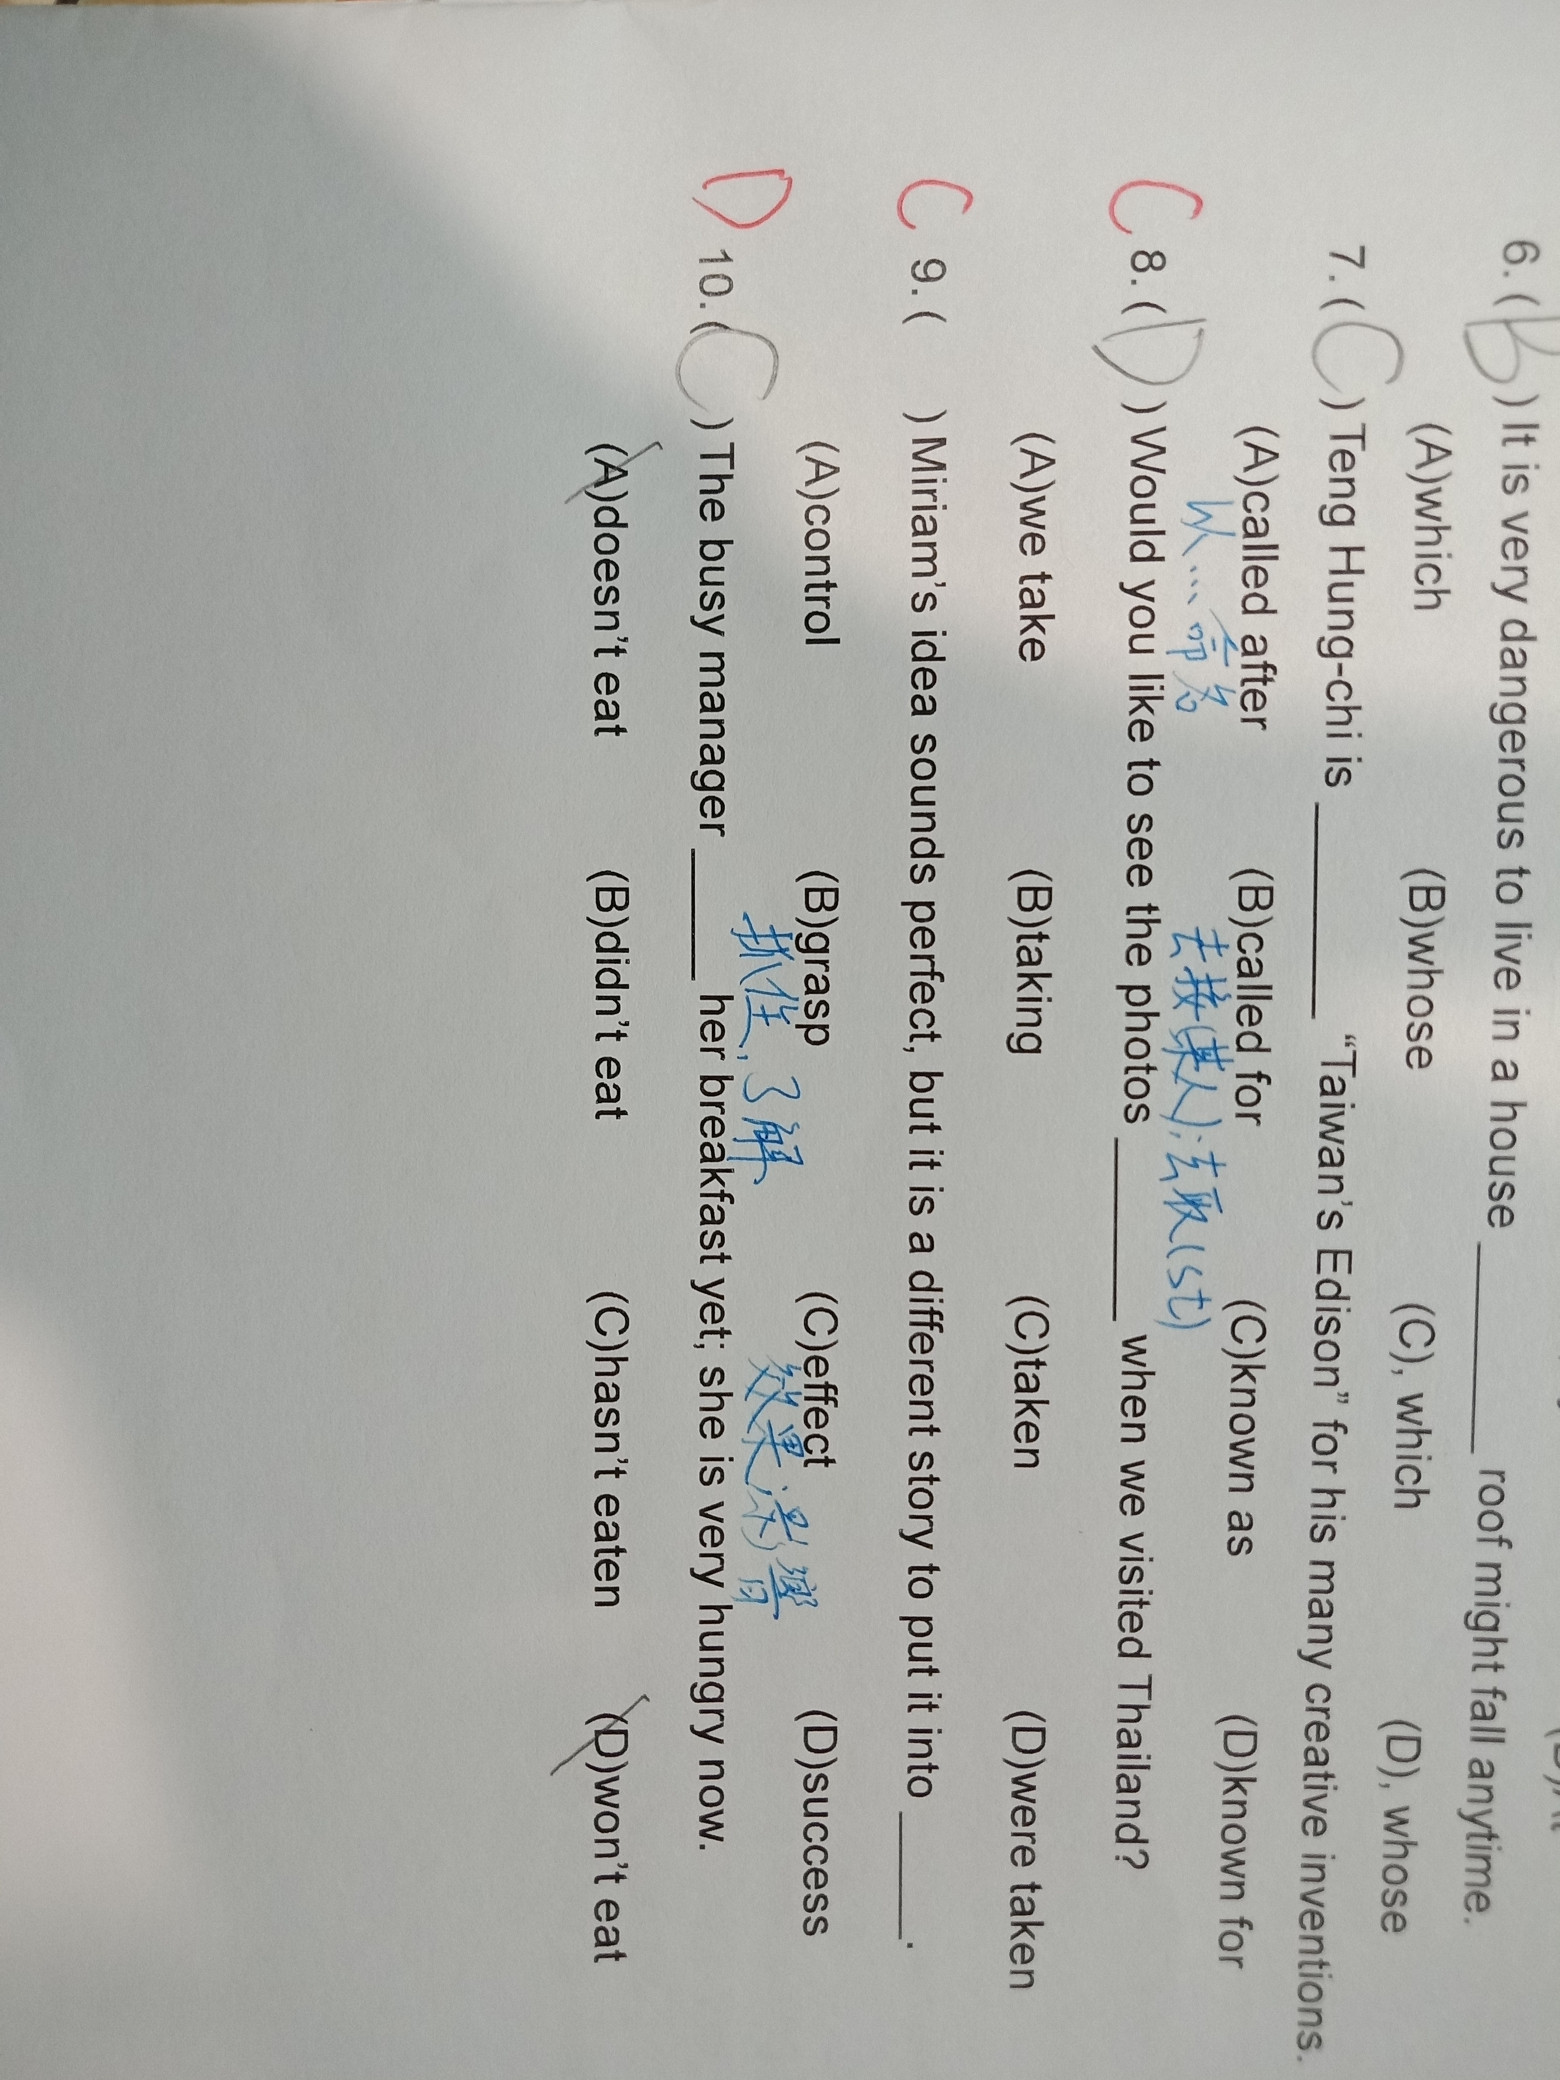 6. ( B ) It is very dangerous to live in a house ________ roof might fall anytime.
(A)which (B)whose (C), which (D), whose
7. ( C ) Teng Hung-chi is ________ “Taiwan’s Edison” for his many creative inventions.
(A)called after (B)called for (C)known as (D)known for
以...命名 去接(某人);去取(st)
C 8. ( D ) Would you like to see the photos ________ when we visited Thailand?
(A)we take (B)taking (C)taken (D)were taken
C 9. ( ) Miriam’s idea sounds perfect, but it is a different story to put it into ______.
(A)control (B)grasp (C)effect (D)success
抓住,了解 效果;影響
D 10. ( C ) The busy manager ______ her breakfast yet; she is very hungry now.
(A)doesn’t eat (B)didn’t eat (C)hasn’t eaten (D)won’t eat